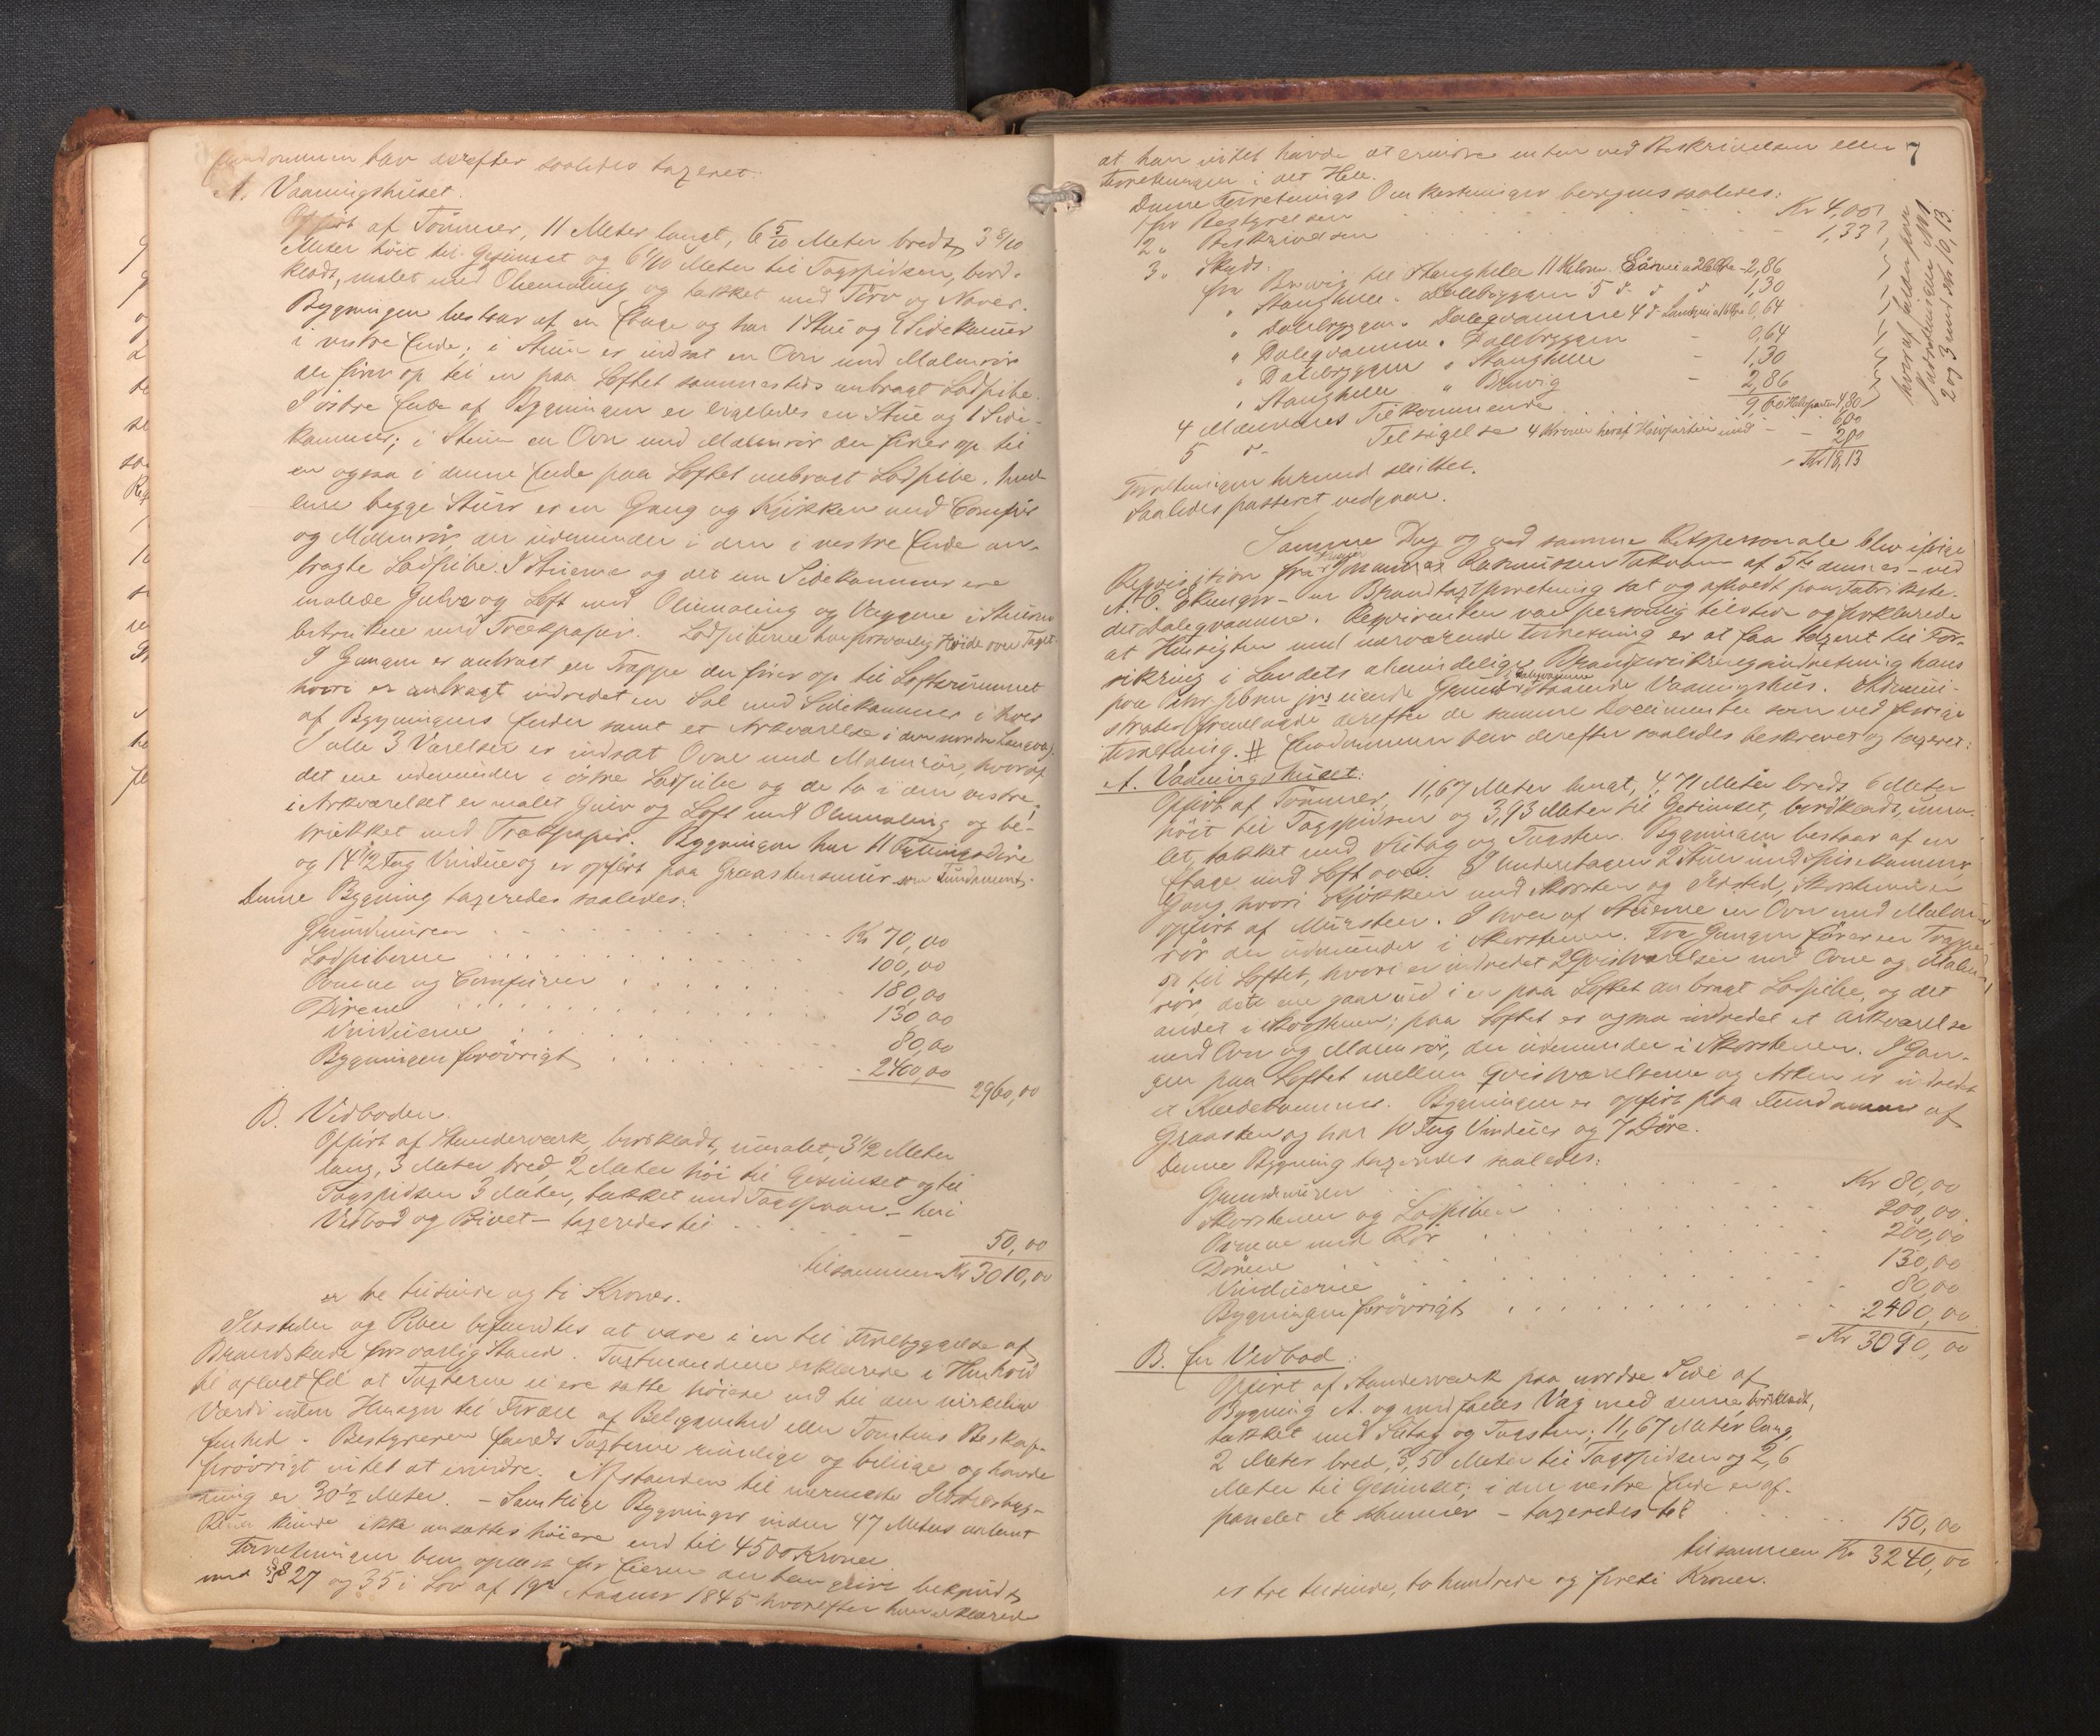 Eiendommen blev derefter saaledes taxeret.
A. Vaaningshuset.
Opført af Tømmer, 11 Meter langt, 6 5/10 Meter bredt, 3 8/10
Meter høit til Gesimset og 6 Meter til Tagspidsen, bord-
klædt, malet med Oliemaling og tækket med Törv og Næver.
Bygningen bestaar af en Etage og har 1 Stue og 1 Sidekamer
i vestre Ende; i Stuen er indsat en Ovn med Malmrör
der förer op til en paa Loftet sammesteds anbragt Lodpibe.
I østre Ende af Bygningen er ligeledes en Stue og 1 Side-
kammer; i Stuen en Ovn med Malmrör der förer op til
en ogsaa i denne Ende paa Loftet anbragt Lodpibe. Mel-
lem begge Stuer er en Gang og Kjökken med Comfür
og Malmrör, der udmunder i den i vestre Ende an-
bragte Lodpibe. I Stuerne og det ene Sidekammer ere
malede Gulve og Loft med Oliemaling og Væggene i Stuerne
betrukne med Trækpapir. Lodpiberne har forsvarlig Höide over Taget
I Gangen er anbragt en Trappe der förer op til Loftsrummet
hvori er anbragt indredet en Sal med Sidekammer i hver
af Bygningens Ender samt et Arkværelse i den nordre Langvæg.
I alle 3 Værelser er indsat Ovne med Malmrör, hvoraf
det ene udmunder i östre Lodpibe og de to i den vestre.
i Arkværelset er malet Gulv og Loft med Oliemaling og be-
trukket med Trækpapir. Bygningen har 11 Fyllingsdöre
og 14 1/2 Fag Vinduer og er opfört paa Graastensmur som Fundament.
Denne Bygning taxeredes saaledes:
Grundmuren Kr 70,00
Lodpiberne 100,00
Ovnene og Comfüren 180,00
Dörene 130,00
Vinduerne 80,00
Bygningen forövrigt 2400,00
2960,00
B. Vedboden.
Opfört af Stenderværk, bordklædt, umalet, 3 1/2 Meter
lang, 3 Meter bred, 2 Meter höi til Gesimset og til
Tagspidsen 3 Meter, tækket med Tagspaan – heri
Vedbod og Privet – taxeredes til
50,00
tilsammen Kr 3010,00
er tre tusinde og ti Kroner.
Ildsteder og Piber befandtes at være i en til Forebyggelse af
Brandskade forsvarlig Stand. Taxtmændene erklærede i Henhold
til aflagt Ed at Taxterne ei ere satte höiere end til den virkelige
Værdi uden Hensyn til Fordel af Beliggenhed eller Tomtens Beskaf-
fenhed. Bestyreren fandt Taxterne rimelige og billige og havde
forövrigt intet at erindre. Afstanden til nærmeste Ildstedsbyg-
ning er 30 1/2 Meter. – Samtlige Bygninger inden 47 Meters
kunde ikke ansættes höiere end til 4500 Kroner
Forretningen blev oplæst for Eieren der blev givet bekjendt
med §§ 27 og 35 i Lov af 19de August 1845 hvorefter han erklærede
7
at han intet havde at erindre enten ved Beskrivelsen eller
Forretningen i det Hele.
Denne Forretnings Omkostninger beregnes saaledes:
1 for Bestyrelsen Kr 4,00
2 " Beskrivelsen 1,33
3 " Skyds.
fra Bruvig til Stanghelle 11 Kilom. Søvei a 26 Øre – 2,86
" Stanghelle " Dalebryggen 5 d. d. d. 1,30
" Dalebryggen " Dalegvamme 4 d. Landvei a 16 Øre 0,64
" Dalegvamme " Dalebryggen – 0,64
" Dalebryggen " Stanghelle – 1,30
" Stanghelle " Bruvig – 2,86
9,60 Halvparten 4,80
4 Mændenes Tilkommende 6,00
5 d. Tilsigelse 4 Kroner heraf Halvparten med – 2,00
Kr 18,13
hvoraf falder paa
2 og 3 med Kr. 10,13
Forretningen hermed sluttet.
Saaledes passeret vedgaar.
Samme Dag og ved samme Retspersonale blev ifølge
Reqvisition fra Johannes Rasmussen Takvam af 5te dennes – ved
A. O. – en Brandtaxtforretning sat og afholdt paa Fabrikste-
det Dalegvamme. Reqvirenten var personlig tilstede og forklarede
at Hensigten med nærværende Forretning er at faa taxeret til For-
sikring i Landets almindelige Brandforsikringsindretning hans
paa eiende Grund Dalegvamme staaende Vaaningshus.
fremlagde derefter de samme Documenter som ved forrige
Forretning. # Eiendommen blev derefter saaledes beskrevet og taxeret:
A. Vaaningshuset:
Opfört af Tömmer, 11,67 Meter langt, 4,71 Meter bredt 6 Meter
höit til Tagspidsen og 3,93 Meter til Gesimset, bordklædt, uma-
let, tækket med Sutag og Tagsten. Bygningen bestaar af en
Etage med Loft over. I Underetagen 2 Stuer med Spisekammer,
Gang hvori Kjökken med Skorsten og Ildsted, Skorstenen er
opfört af Mursten. I hver af Stuerne en Ovn med Malm-
rör der udmunder i Skorstenen. Fra Gangen förer en Trappe
op til Loftet, hvori er indredet 2 Qvistværelser med Ovne og Malm-
rör, det ene gaar ud i en paa Loftet anbragt Lodpibe, og det
andet i Skorstenen; paa Loftet er ogsaa indredet et Arkværelse
med Ovn og Malmrör, der udmunder i Skorstenen. I Gan-
gen paa Loftet mellem Qvistværelserne og Arken er indredet
et Klædekammer. Bygningen er opfört paa Fundament af
Graasten og har 10 Fag Vinduer og 7 Döre.
Denne Bygning taxeredes saaledes:
Grundmuren Kr 80,00
Skorstenen og Lodpiben 200,00
Ovnene med Rör 200,00
Dörene 130,00
Vinduerne 80,00
Bygningen forövrigt 2400,00
– Kr 3090,00
B. En Vedbod.
Opfört af Stenderværk paa nordre Side af
Bygning A. og med fælles Væg med denne, bordklædt,
tækket med Sutag og Tagsten; 11,67 Meter lang,
2 Meter bred, 3,50 Meter til Tagspidsen og 2,6
Meter til Gesimset; i den vestre Ende er af-
panelet et Kammer – taxeredes til
150,00
tilsammen Kr 3240,00
er tre tusinde, to hundrede og förti Kroner.